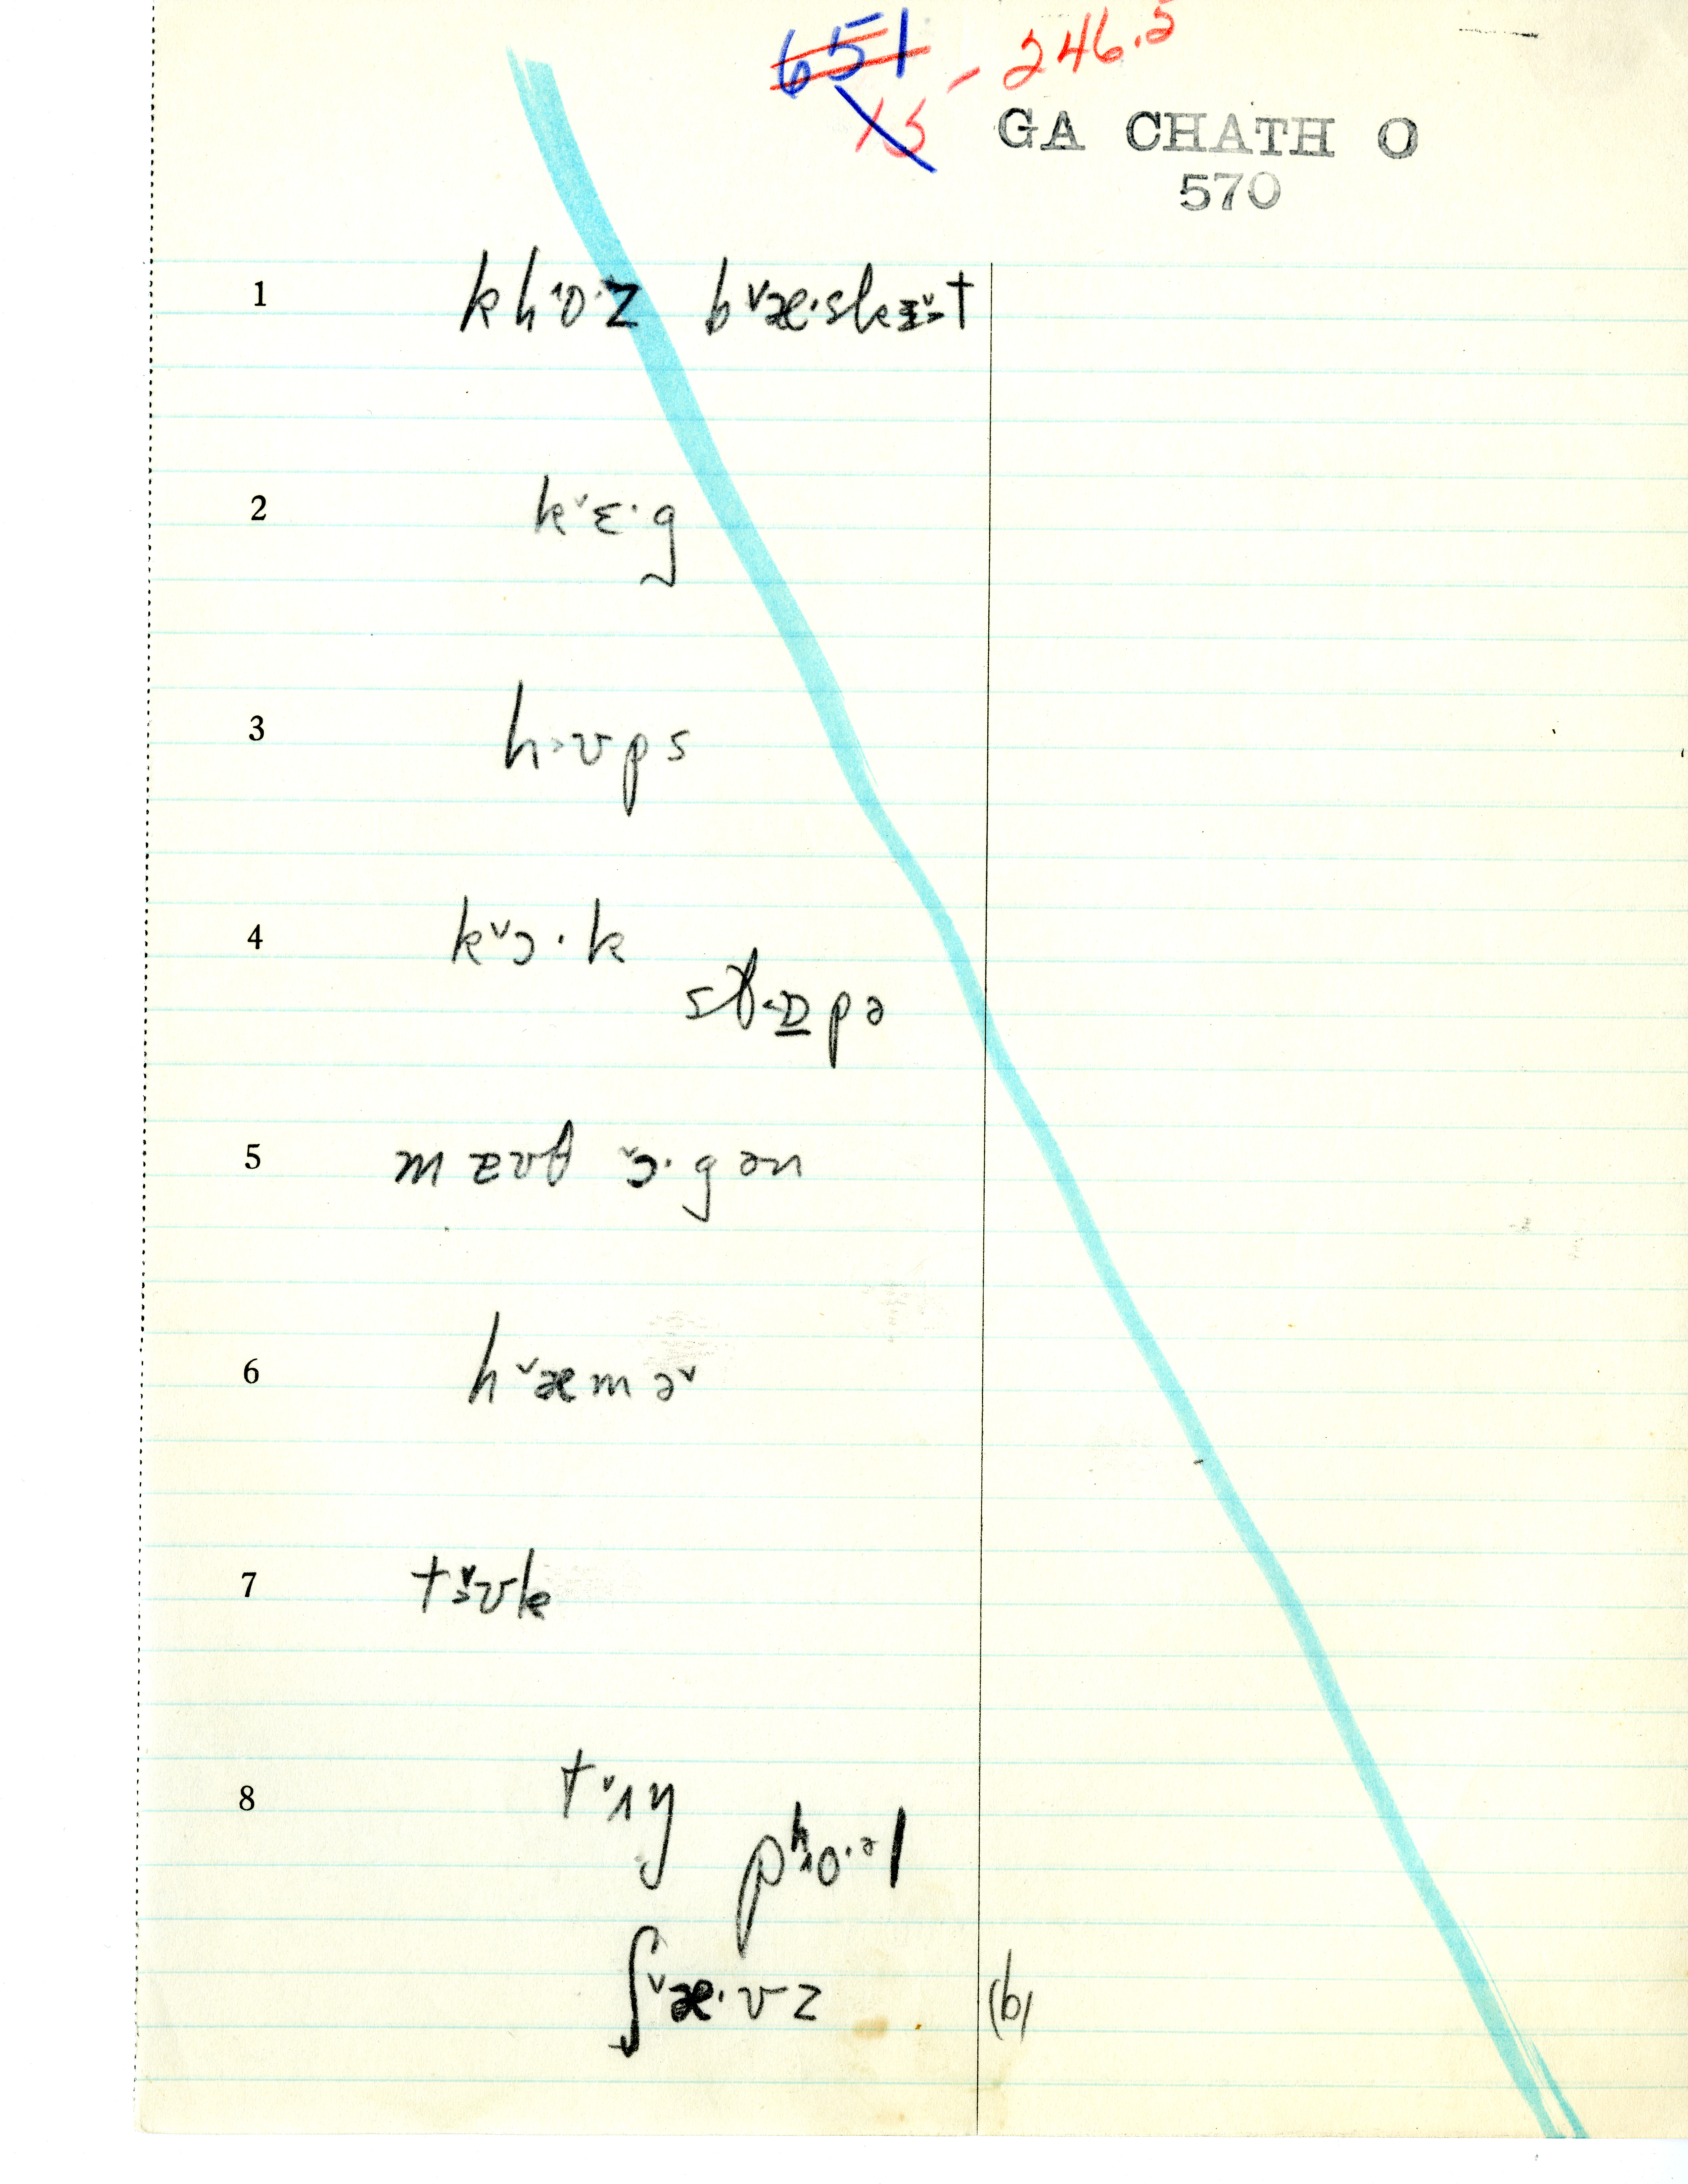 651 - 246.5
15
GA CHATH O
570
1 kh˄o·z b˅æ·sk t
2 k˅ɛ·g
3 h˃ʊps
4 k˅ɔ·k
pə
5 ˅ɔ·gən
6 h˅æmə˅
7 t ʊk
8 t˅ɪy
pʰ o·ᵊl
ʃ˅æ·vz (b)